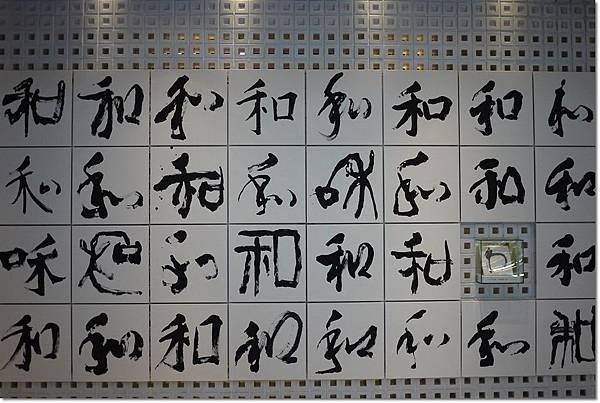 和和和和和和和和
和和和和咊和和和
咊和和和和和和
和和和和和和和和